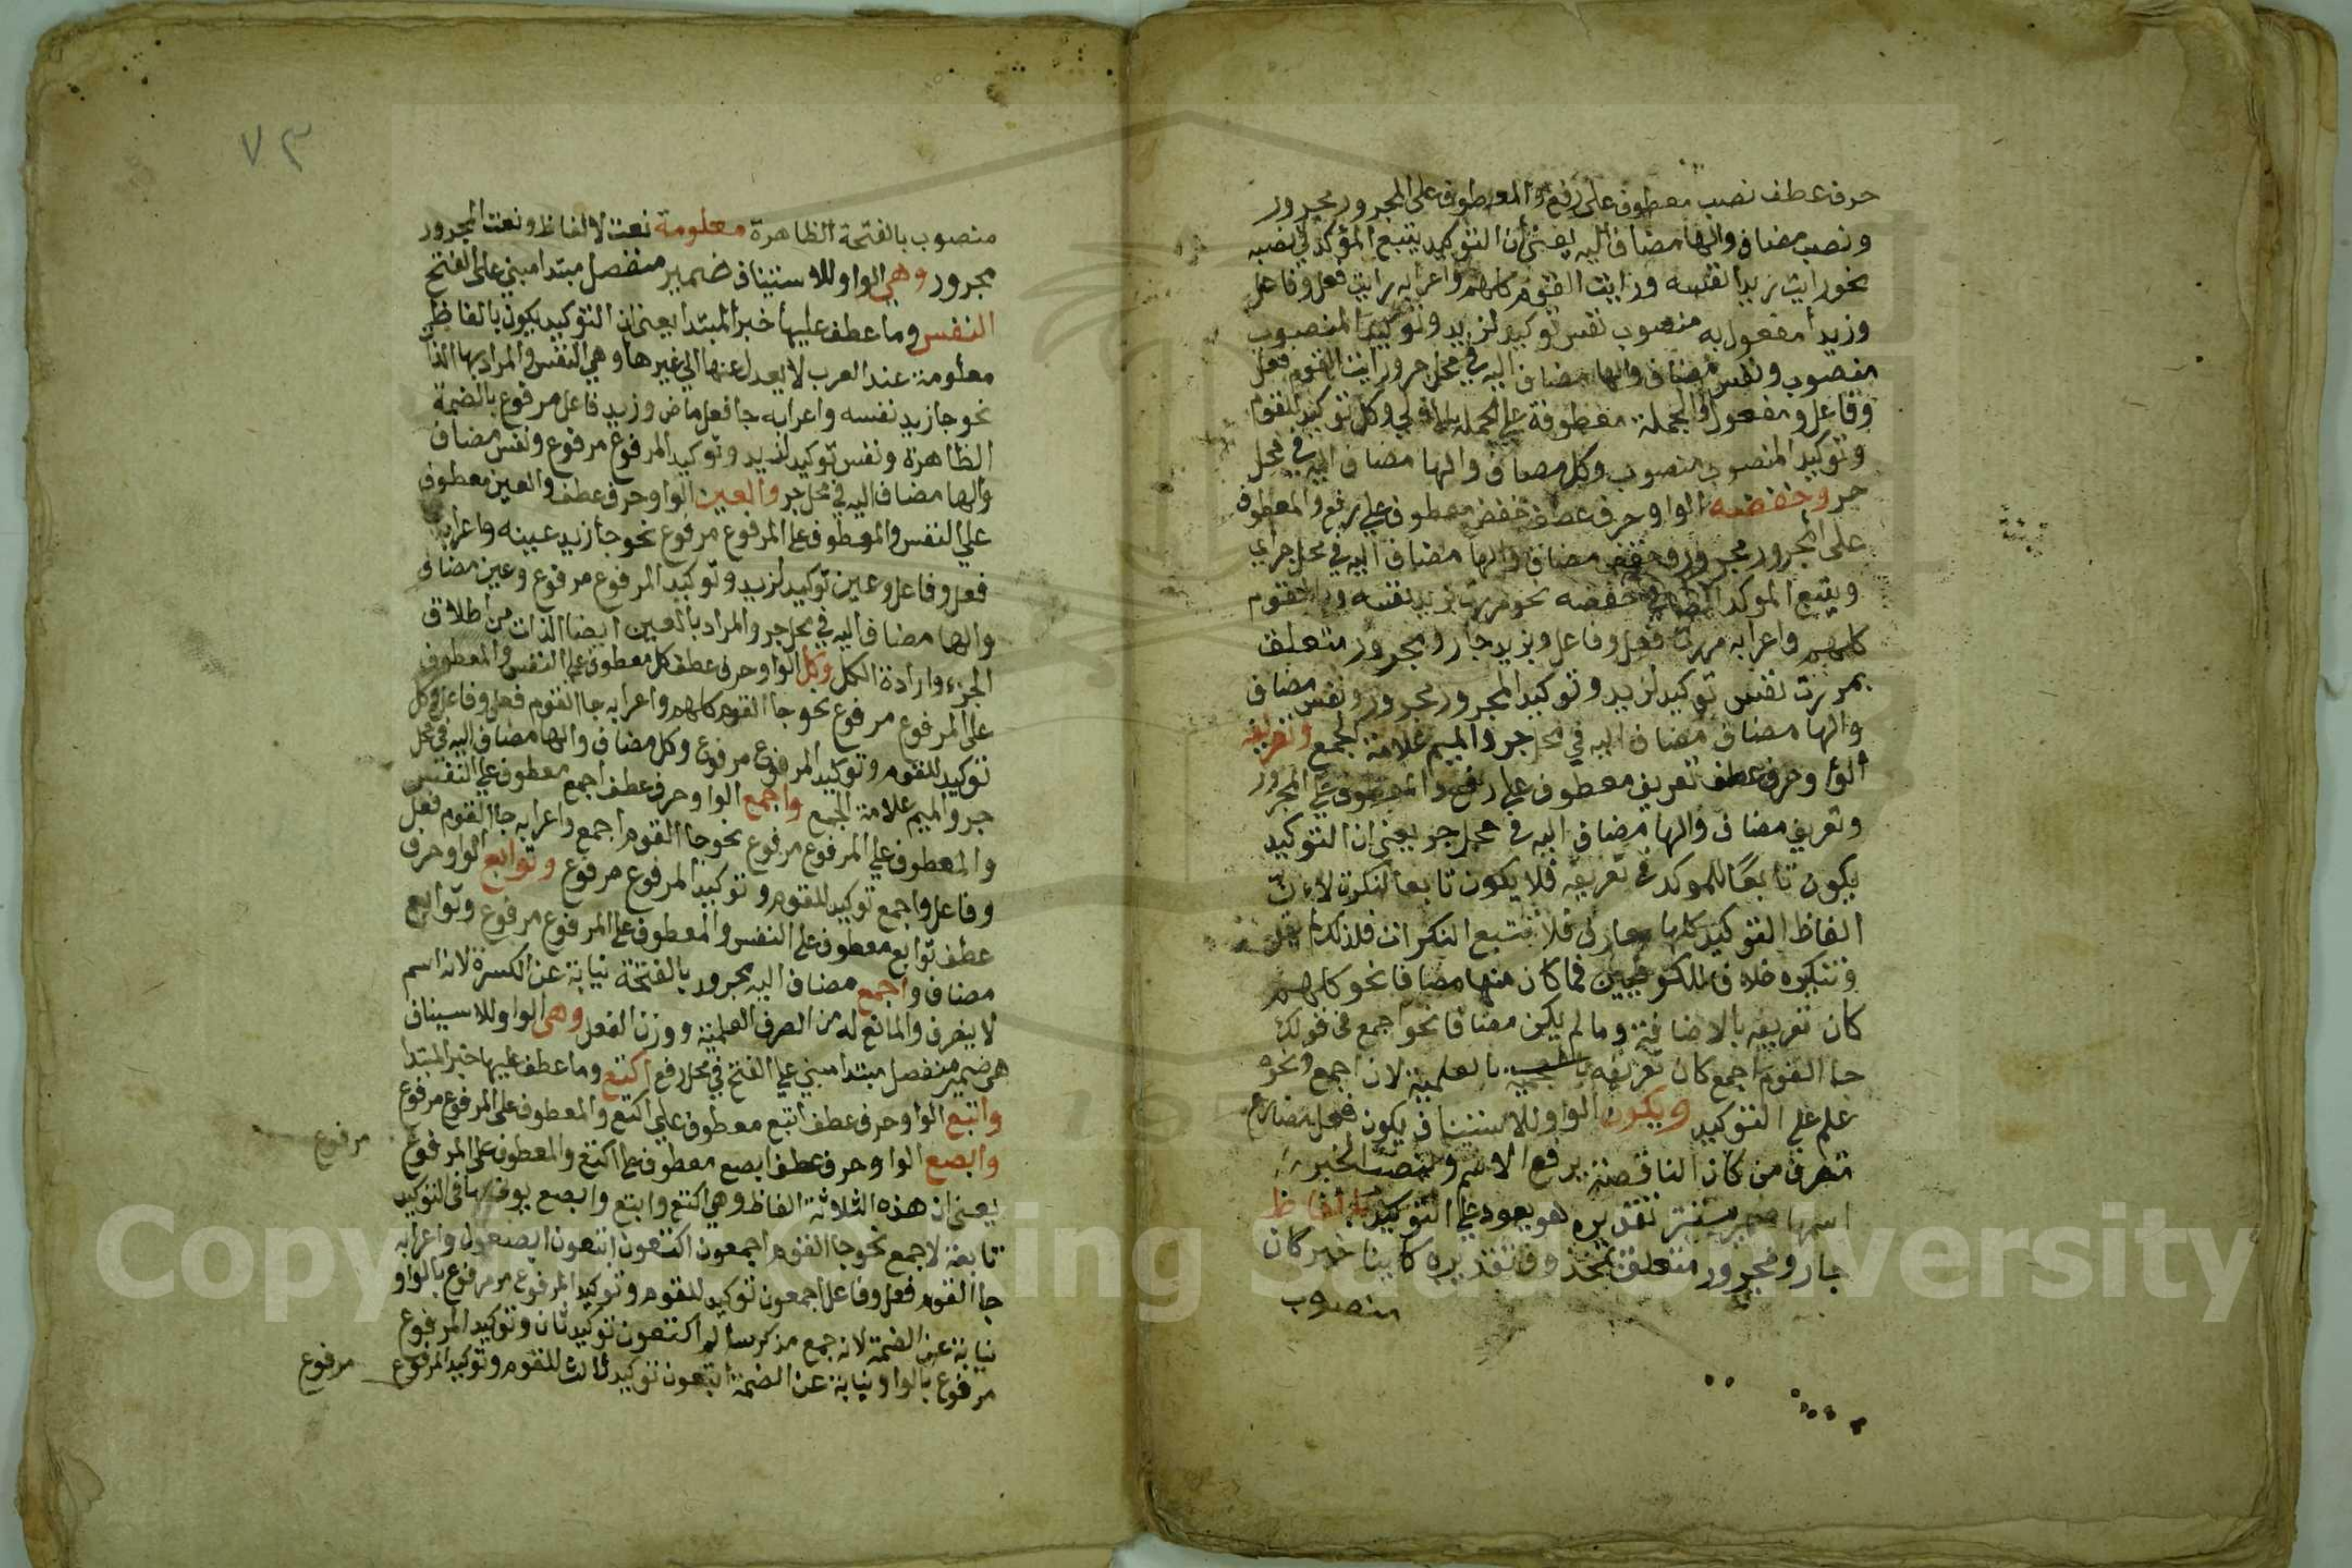 حرف عطف نصب معطوف على رفع والمعطوف على المجرور مجرور
ونصب مضاف والها مضاف اليه يعني أن التوكيد يتبع المؤكد في نصبه
نحو رايت زيدا نفسه ورايت القوم كلهم واعرابه رايت فعل وفاعل
وزيدا مفعول به منصوب نفس توكيد لزيد وتوكيد المنصوب
منصوب ونفس مضاف والها مضاف اليه في محل جر ورايت القوم فعل
وفاعل ومفعول والجملة معطوفة على الجملة الاولى وكل توكيد للقوم
وتوكيد المنصوب منصوب وكل مضاف والها مضاف اليه في محل
جر وخفضه الواو حرف عطف خفض معطوف علي رفع والمعطوف
على المجرور مجرور وخفض مضاف والها مضاف اليه في محل جر اي
ويتبع الموكد في خفضه نحو مررت بزيد نفسه وبالقوم
كلهم واعرابه مررت فعل وفاعل وبزيد جار ومجرور متعلق
بمررت نفس توكيد لزيد وتوكيد المجرور مجرور ونفس مضاف
والها مضاف مضاف اليه في محل جر والميم علامة الجمع وتعريفه
الواو حرف عطف تعريف معطوف علي رفع والمعطوف علي المجرور
وتعريف مضاف والها مضاف اليه في محل جر يعني ان التوكيد
يكون تابعًا للموكد في تعريفه فلا يكون تابعا لنكرة لان
الفاظ التوكيد كلها معارف فلا تتبع النكرات فلذلك لم يقل
وتنكيره خلافا للكوفيين فما كان منها مضافا نحو كلهم
كان تعريفه بالاضافة وما لم يكن مضافا نحو اجمع في قولك
جا القوم اجمع كان تعريفه بالعلمية لان اجمع ونحوه
علم علي التوكيد ويكون الواو للاستيناف يكون فعل مضارع
متصرف من كان الناقصة يرفع الاسم وينصب الخبر
اسمها مستتر تقديره هو يعود علي التوكيد بالفاظ
جار ومجرور متعلق بمحذوف تقديره كاينا خبر كان
منصوب
٧٣
منصوب بالفتحة الظاهرة معلومة نعت لالفاظ ونعت المجرور
مجرور وهي الواو للاستيناف ضمير منفصل مبتدا مبني على الفتح
النفس وما عطف عليها خبر المبتدا يعني ان التوكيد يكون بالفاظ
معلومة عند العرب لا يعدل عنها الي غيرها وهي النفس والمراد بها الذا
نحو جا زيد نفسه واعرابه جا فعل ماض وزيد فاعل مرفوع بالضمة
الظاهرة ونفس توكيد لزيد وتوكيد المرفوع مرفوع ونفس مضاف
والها مضاف اليه في محل جر والعين الواو حرف عطف والعين معطوف
علي النفس والمعطوف على المرفوع مرفوع نحو جا زيد عينه واعرابه
فعل وفاعل وعين توكيد لزيد وتوكيد المرفوع مرفوع وعين مضاف
والها مضاف اليه في محل جر والمراد بالعين ايضا الذات من اطلاق
الجزء وارادة الكل وكل الواو حرف عطف كل معطوف على النفس والمعطوف
على المرفوع مرفوع نحو جا القوم كلهم واعرابه جا القوم فعل وفاعل وكل
توكيد للقوم وتوكيد المرفوع مرفوع وكل مضاف والها مضاف اليه في محل
جر والميم علامة الجمع واجمع الواو حرف عطف اجمع معطوف علي النفس
والمعطوف علي المرفوع مرفوع نحو جا القوم اجمع واعرابه جا القوم فعل
وفاعل واجمع توكيد للقوم وتوكيد المرفوع مرفوع وتوابع الواو حرف
عطف توابع معطوف على النفس والمعطوف على المرفوع مرفوع وتوابع
مضاف واجمع مضاف اليه مجرور بالفتحة نيابة عن الكسرة لانه اسم
لا ينصرف والمانع له من الصرف العلمية ووزن الفعل وهي الواو للاسيناف
هي ضمير منفصل مبتدا مبني علي الفتح في محل رفع اكتع وما عطف عليها خبر المبتدا
وابتع الواو حرف عطف ابتع معطوف علي اكتع والمعطوف على المرفوع مرفوع
وابصع الواو حرف عطف ابصع معطوف على اكتع والمعطوف على المرفوع
مرفوع
يعني ان هذه الثلاثة الفاظ وهي اكتع وابتع وابصع يوتى بها في التوكيد
تابعة لاجمع نحو جا القوم اجمعون اكتعون ابتعون ابصعون واعرابه
جا القوم فعل وفاعل اجمعون توكيد للقوم وتوكيد المرفوع مرفوع بالواو
نيابة عن الضمة لانه جمع مذكر سالم اكتعون توكيد ثان وتوكيد المرفوع
مرفوع بالواو نيابة عن الضمة ابتعون توكيد ثالث للقوم وتوكيد المرفوع
مرفوع